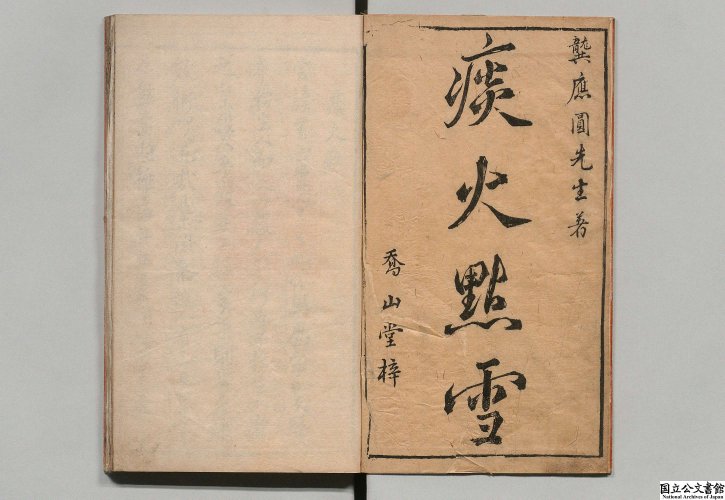 龔應圓先生著
痰火點雪
喬山堂梓
国立公文書館
National Archives of Japan